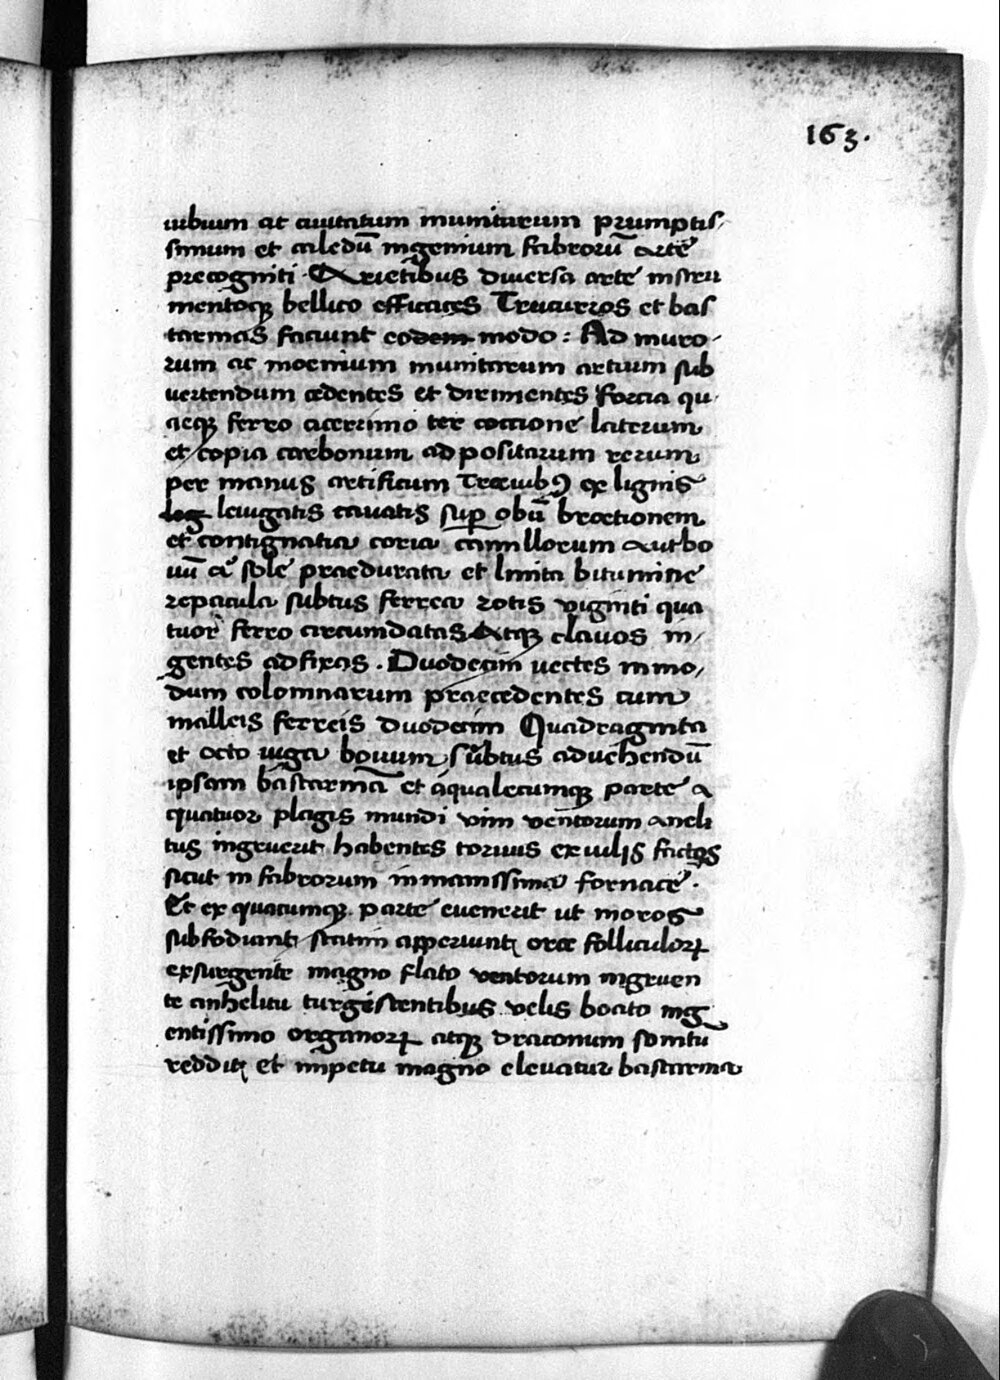 163.
urbium ac ciuitatum munitarum prumptis
simum et calcedū ingenium fabrorū arte
precogniti. Arietibus diuersa arte instru
mentoqꝫ bellico efficaces Trucurros et bas
tarmas faciunt eodem modo: Ad muro
rum ac moenium munitarum artium sub
uertendum cedentes et dirimentes forcia qu
aeqꝫ ferro acerrimo ter coccione laterum
et copia carbonum ad positarum rerum
per manus artificum Trauibꝰ ex lignis
leuigatis cauatis suꝑ obū bractionem
et contignatia coria camillorum aut bo
uū a sole praedurata et linita bitumine
repacula subtus ferrea rotis viginti qua
tuor ferro circumdatas Atqꝫ clauos in
gentes ad fixas. Duodecim uectes in mo
dum colomnarum praecedentes cum
malleis ferreis duodecim Quadraginta
et octo iuga bouum subtus aduehendū
ipsam bastarmā et aqualecumqꝫ parte a
quatuor plagis mundi vim ventorum aneli
tus ingruerit habentes toruus ex uilis factos
sicut in fabrorum inmanissima fornace.
Et ex quacumqꝫ parte euenerit ut moros
subfodiant statim apperiunt orae folliculoꝝ
exsurgente magno flato ventorum ingruen
te anhelitu turgescentibus velis boato ing
entissimo organoꝝ atqꝫ draconum sonitū
reddit et impetu magno eleuatur bastarma